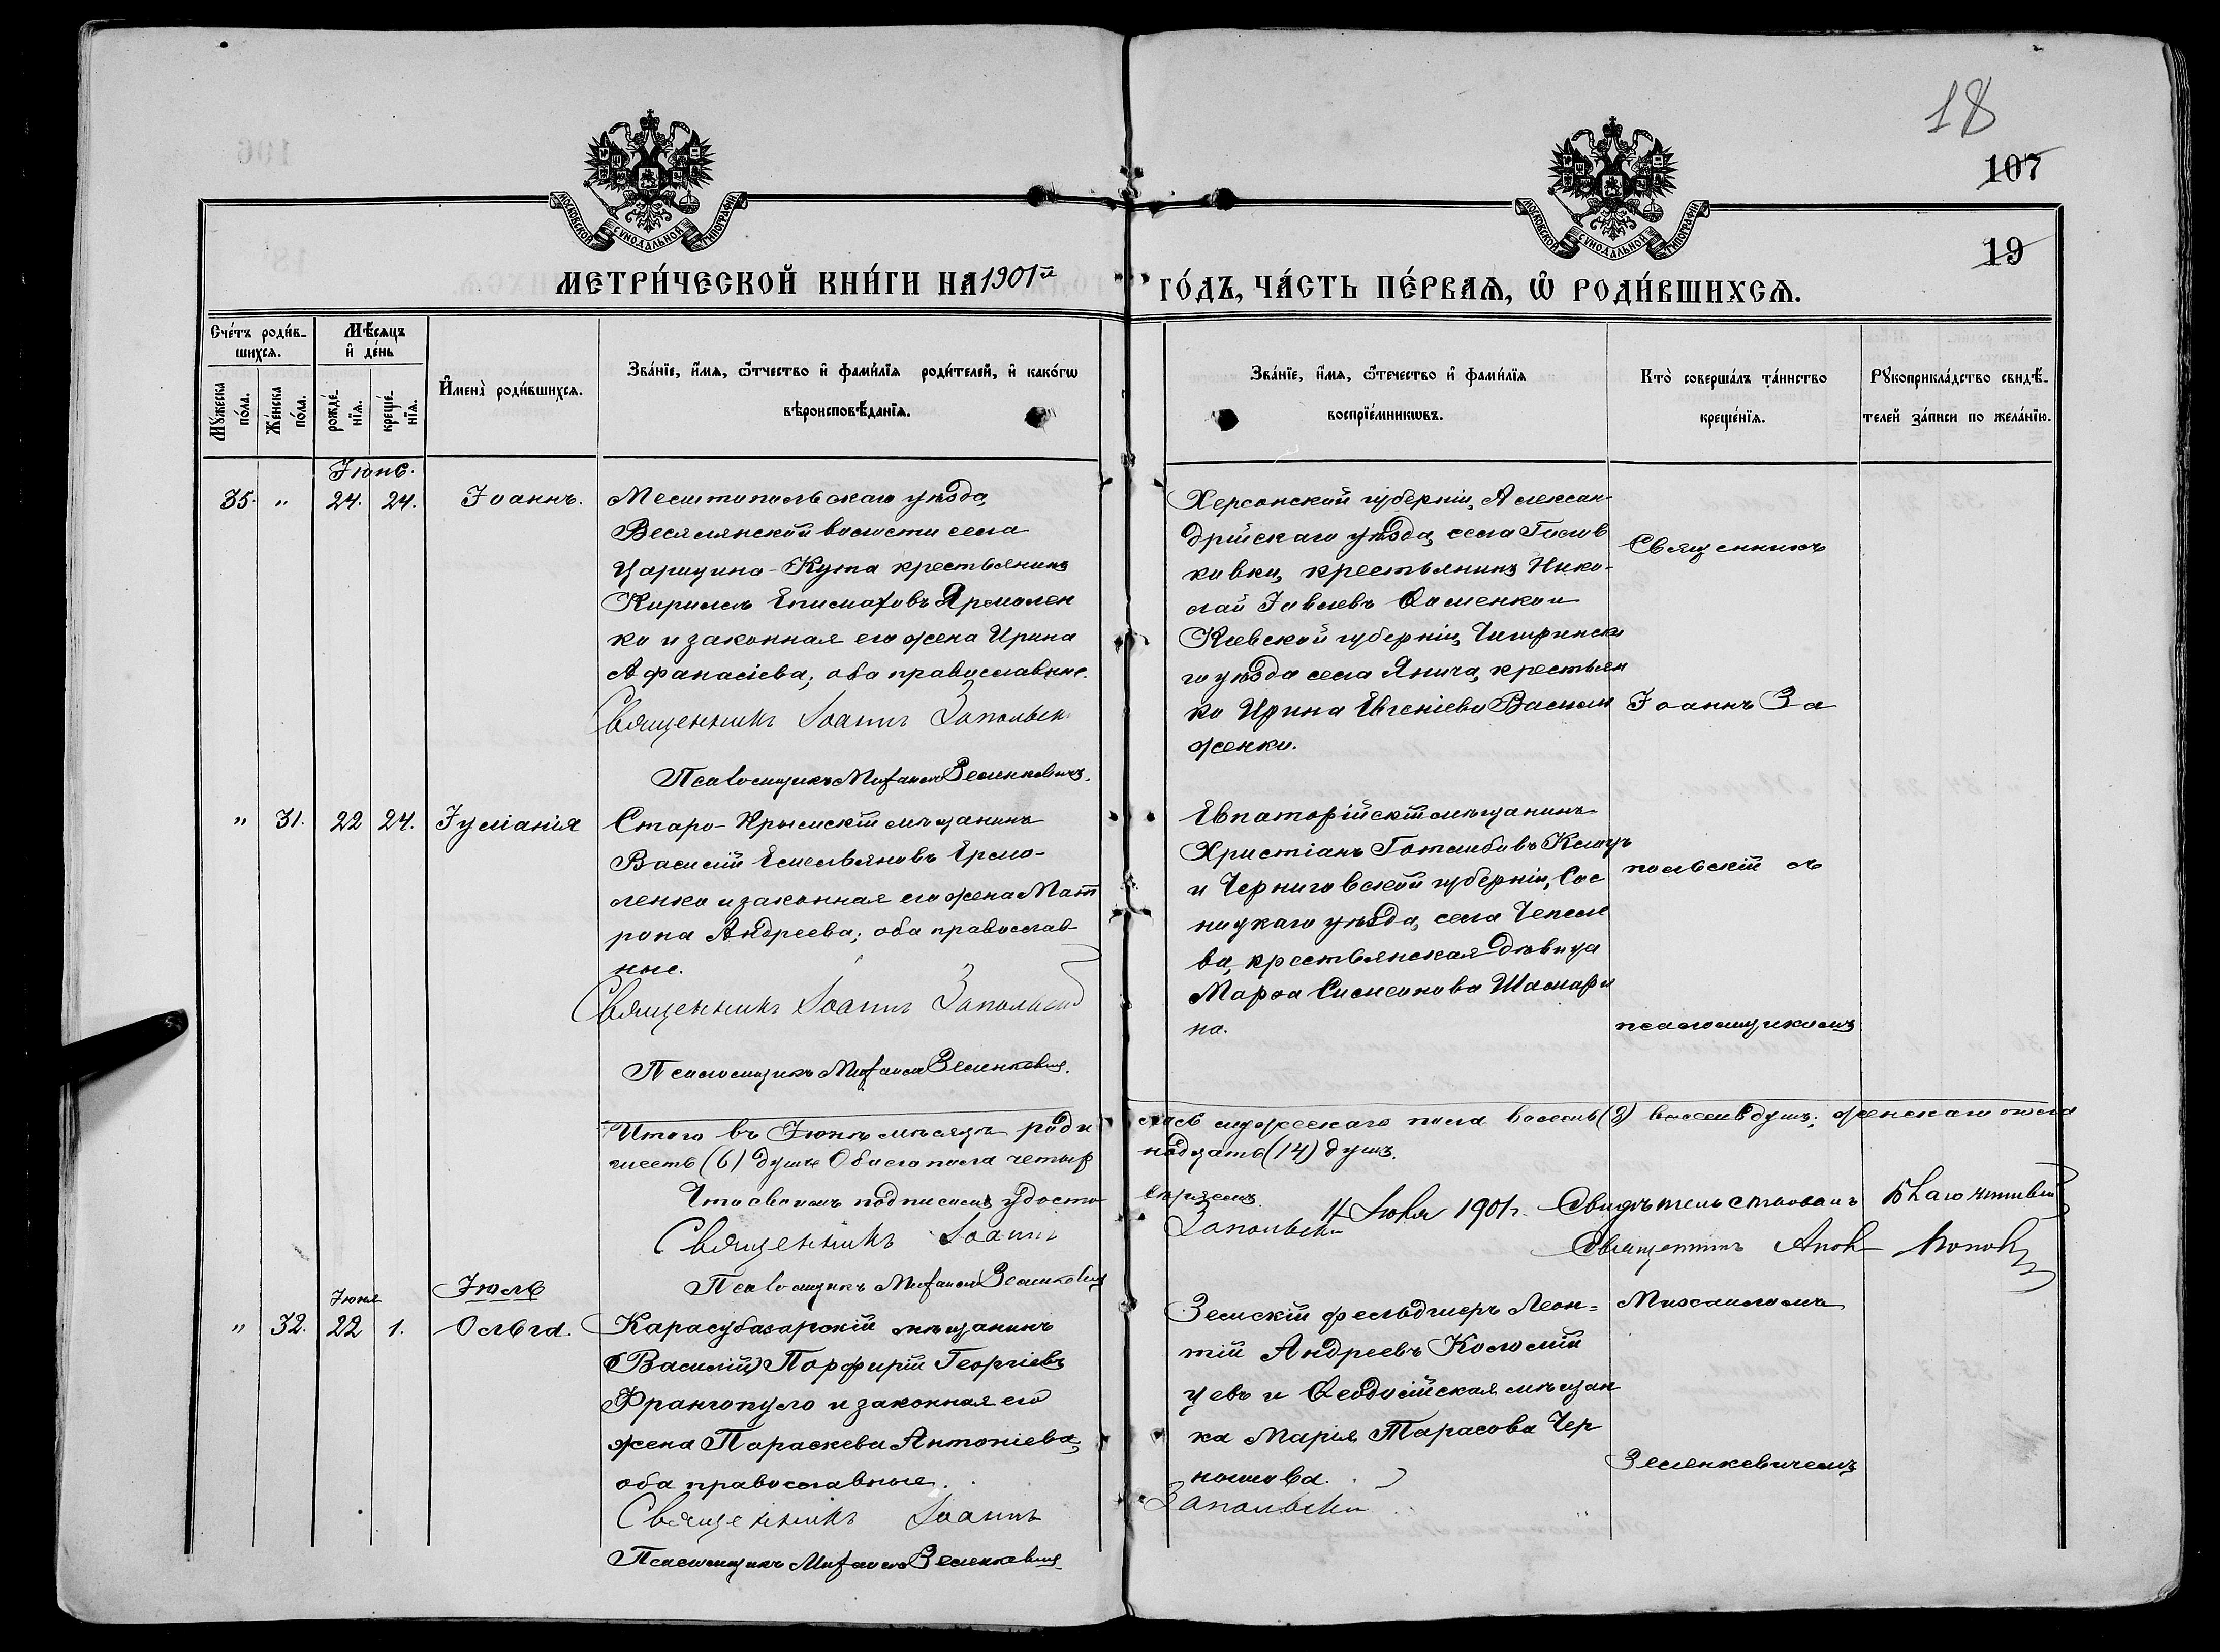 18
107
19
МОСКОВСКОЙ СѴНОДАЛЬНОЙ ТИПОГРАФІИ
МОСКОВСКОЙ СѴНОДАЛЬНОЙ ТИПОГРАФІИ
МЕТРИ́ЧЕСКОЙ КНИ́ГИ НА 1901й ГО́ДЪ, ЧА́СТЬ ПЕ́РВАѦ, Ѡ҆ РОДИ́ВШИХСѦ.
Сче́тъ роди́в-
шихсѧ.
Мꙋжеска по́ла.
Же́нска по́ла.
Мѣ́сяцъ
и҆ де́нь
рожде́-
нїѧ.
креще́-
нїѧ.
И҆мена̀ роди́вшихсѧ.
Зва́нїе, и҆́мѧ, ѻ҆́тчество и҆ фами́лїѧ роди́телей, и҆ како́гѡ
вѣроисповѣ́данїѧ.
Зва́нїе, и҆́мѧ, ѻ҆те́чество и҆ фами́лїѧ
воспрїе́мникѡвъ.
Кто̀ соверша́лъ та́инство
креще́нїѧ.
Рꙋкоприкла́дство свидѣ́-
телей за́писи по жела́нїю.
Іюнь.
35. " 24. 24. Іоаннъ.
Мелитопольскаго уѣзда,
Веселянской волости села
Царицина-Кута крестьянинъ
Кириллъ Епимаховъ Ярмолен
ко и законная его жена Ирина
Афанасіева; оба православные.
Священникъ Іоаннъ Запольск
Псаломщикъ Михаилъ Зеленкевичъ.
Херсонской губерніи, Алексан-
дрійскаго уѣзда, села
ковки, крестьянинъ Нико-
лай Іовлевъ и
Кіевской губерніи, Чигиринска
го уѣзда села Янича, крестьян
ка Ирина Евгеніева
женки.
Священникъ
Іоаннъ За
" 31. 22 24. Іуліанія
Старо-Крымскій мѣщанинъ
Василій Емельяновъ Ермо-
ленко и законная его жена Мат
рона Андреева; оба православ-
ные.
Священникъ Іоаннъ Запольскій
Псаломщикъ Михаилъ Зеленкевич.
Евпаторійскій мѣщанинъ
Христіанъ Готлибовъ
и Черниговской губерніи, Сос
ницкаго уѣзда, села
ва, крестьянская дѣвица
Марѳа Симеонова Шамари
на.
польскій съ
псаломщикомъ
Итого въ Іюнѣ мѣсяцѣ роди лось мужескаго пола восемь (8) восемь душъ; женскаго пола
шесть (6) душъ Обоего пола четыр надцать (14) душъ.
Что своимъ подписомъ удосто вѣряемъ.
Священникъ Іоаннъ Запольскій
Псаломщикъ Михаилъ Зеленкевич
4 Іюля 1901 г. Свидѣтельствовалъ Благочинный
Священникъ Попов
Іюль
Іюня
" 32. 22 1. Ольга.
Карасубазарскій мѣщанинъ
(Василій) Порфирій Георгіевъ
Франгопуло и законная его
жена Параскева Антоніева,
оба православные.
Священникъ Іоаннъ Запольскій
Псаломщикъ Михаилъ Зеленкевич
Земскій фельдшеръ Леон=
тій Андреевъ Коломій
цевъ и Ѳеодосійская мѣщан
ка Марія Тарасова Чер
нышова.
Михаиломъ
Зеленкевичемъ